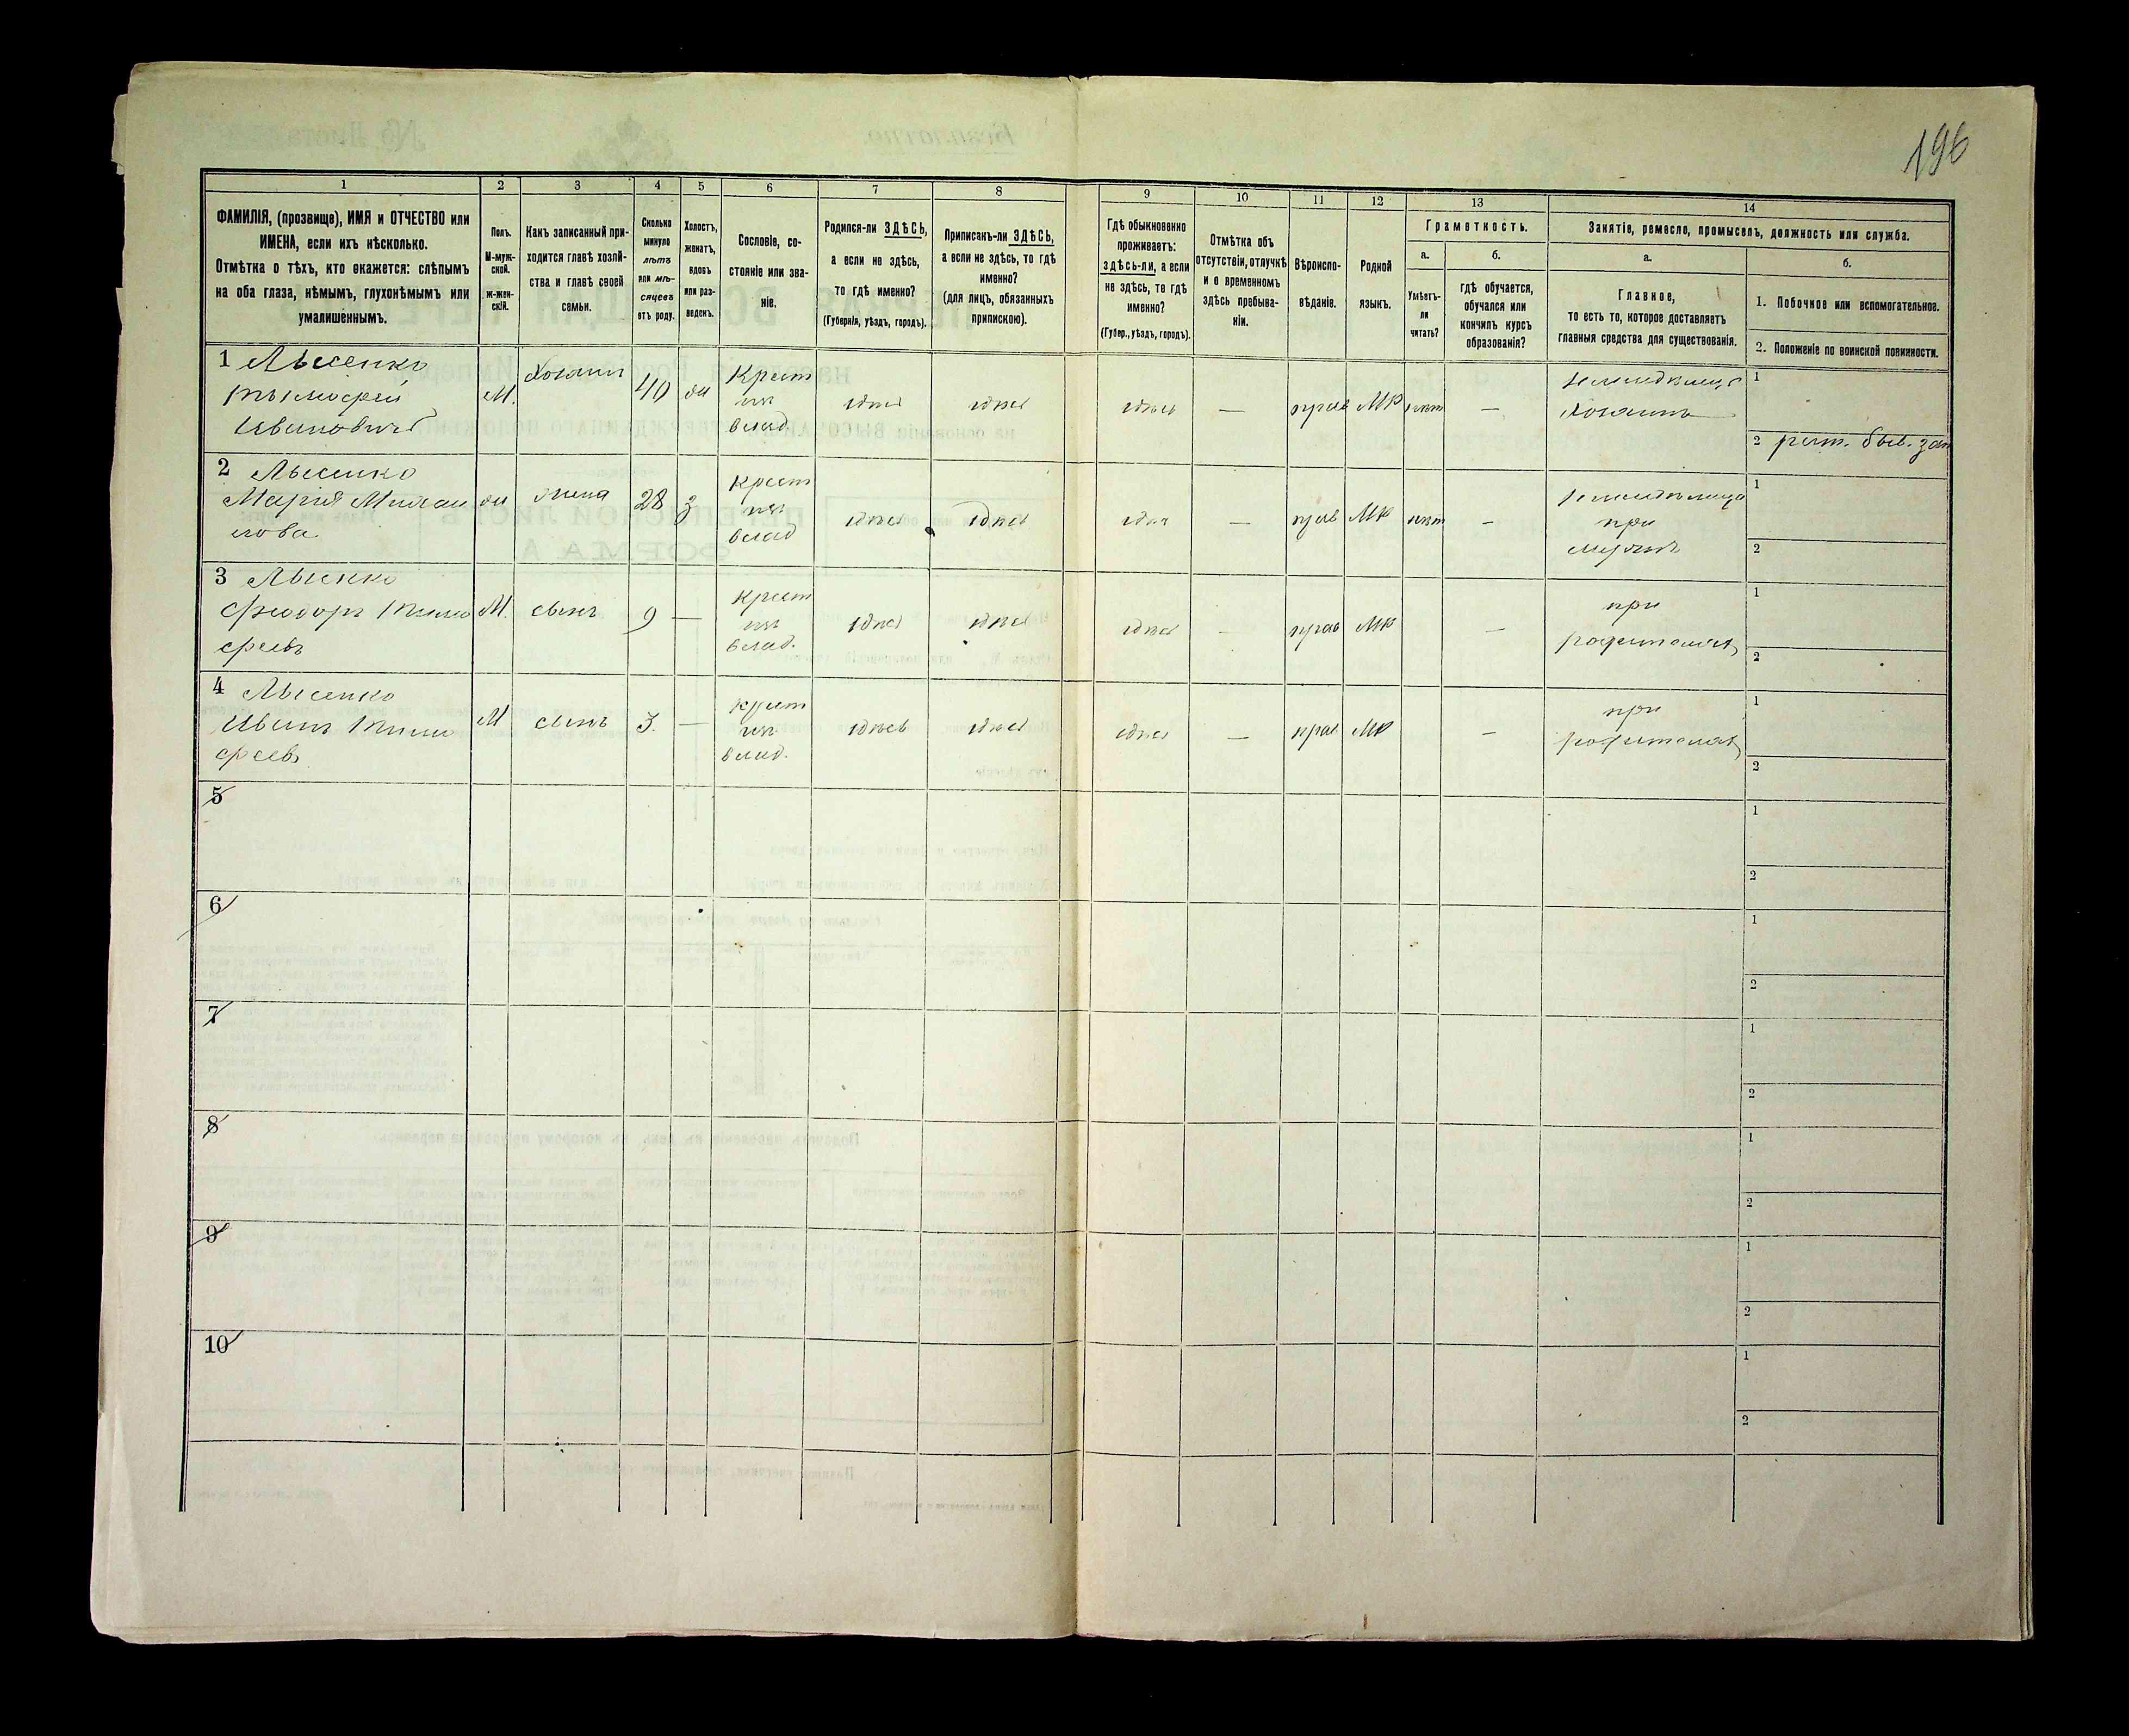 196
1 2 3 4 5 6 7 8 9 10 11 12 13 14
ФАМИЛІЯ, (прозвище), ИМЯ и ОТЧЕСТВО или
ИМЕНА, если ихъ нѣсколько.
Отмѣтка о тѣхъ, кто окажется: слѣпымъ
на оба глаза, нѣмымъ, глухонѣмымъ или
умалишеннымъ.
Полъ.
М-муж-
ской.
ж-жен-
скій.
Какъ записанный при-
ходится главѣ хозяй-
ства и главѣ своей
семьи.
Сколько
минуло
лѣтъ
или мѣ-
сяцевъ
отъ роду.
Холостъ,
женатъ,
вдовъ
или раз-
веденъ.
Сословіе, со-
стояніе или зва-
ніе.
Родился-ли ЗДѢСЬ,
а если не здѣсь,
то гдѣ именно?
(Губернія, уѣздъ, городъ).
Приписанъ-ли ЗДѢСЬ,
а если не здѣсь, то гдѣ
именно?
(для лицъ, обязанныхъ
припискою).
Гдѣ обыкновенно
проживаетъ:
здѣсь-ли, а если
не здѣсь, то гдѣ
именно?
(Губер., уѣздъ, городъ).
Отмѣтка объ
отсутствіи, отлучкѣ
и о временномъ
здѣсь пребыва-
ніи.
Вѣроиспо-
вѣданіе.
Родной
языкъ.
Грамотность.
а.
Умѣетъ-
ли
читать?
б.
гдѣ обучается,
обучался или
кончилъ курсъ
образованія?
Занятіе, ремесло, промыселъ, должность или служба.
а.
Главное,
то есть то, которое доставляетъ
главныя средства для существованія.
б.
1. Побочное или вспомогательное.
2. Положеніе по воинской повинности.
1 Лысенко
Тымофей
Ивановичъ
М.
Хозяинъ
40
жн
Крест
изъ
влад.
здѣсь
здѣсь
здѣсь
—
прав
МР
нѣт
—
Хозяинъ
1
2
2 Лысенко
Мария Михаи
лова
жн
жена
28
з
Крест
изъ
влад
здѣсь
здѣсь
здѣсь
—
прав
МР
нѣт
—
при
мужѣ
1
2
3 Лысенко
Феодоръ Тимо
феевъ
М.
сынъ
9
—
Крест
изъ
влад.
здѣсь
здѣсь
здѣсь
—
прав
МР
—
при
родителях
1
2
4 Лысенко
Иванъ Тимо
феевъ
М
сынъ
3.
—
Крест
изъ
влад.
здѣсь
здѣсь
здѣсь
—
прав
МР
—
при
родителях
1
2
5
1
2
6
1
2
7
1
2
8
1
2
9
1
2
10
1
2